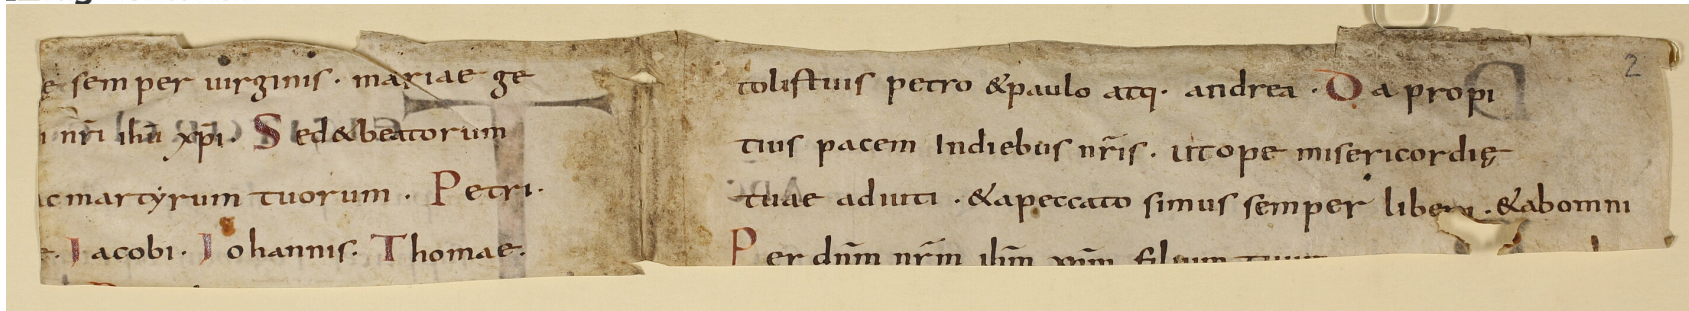 e semper uirginis . mariae ge
i nr̄i ihū xp̄i . Sed & beatorum
ac martyrum tuorum . Petri .
e . Iacobi . Iohannis . Thomae .
2
tolis tuis petro & paulo atq . andrea . Da propi
tius pacem In diebus nr̄is . ut ope misericordię
tuae adiuti . & a peccato simus semper liberi . & ab omni
Per dn̄m nr̄m ih̄m xp̄m filium tuum